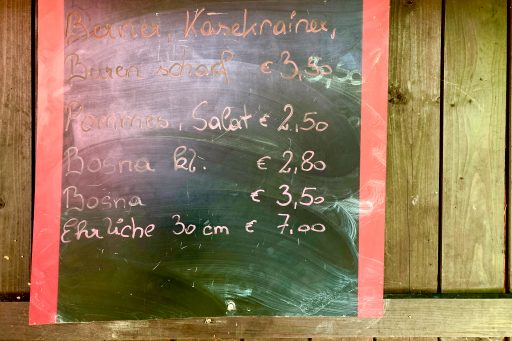 Berner, Käsekrainer,
Buren scharf € 3,30
Pommes, Salat € 2,50
Bosna kl. € 2,80
Bosna € 3,50
Ehrliche 30 cm € 7.00